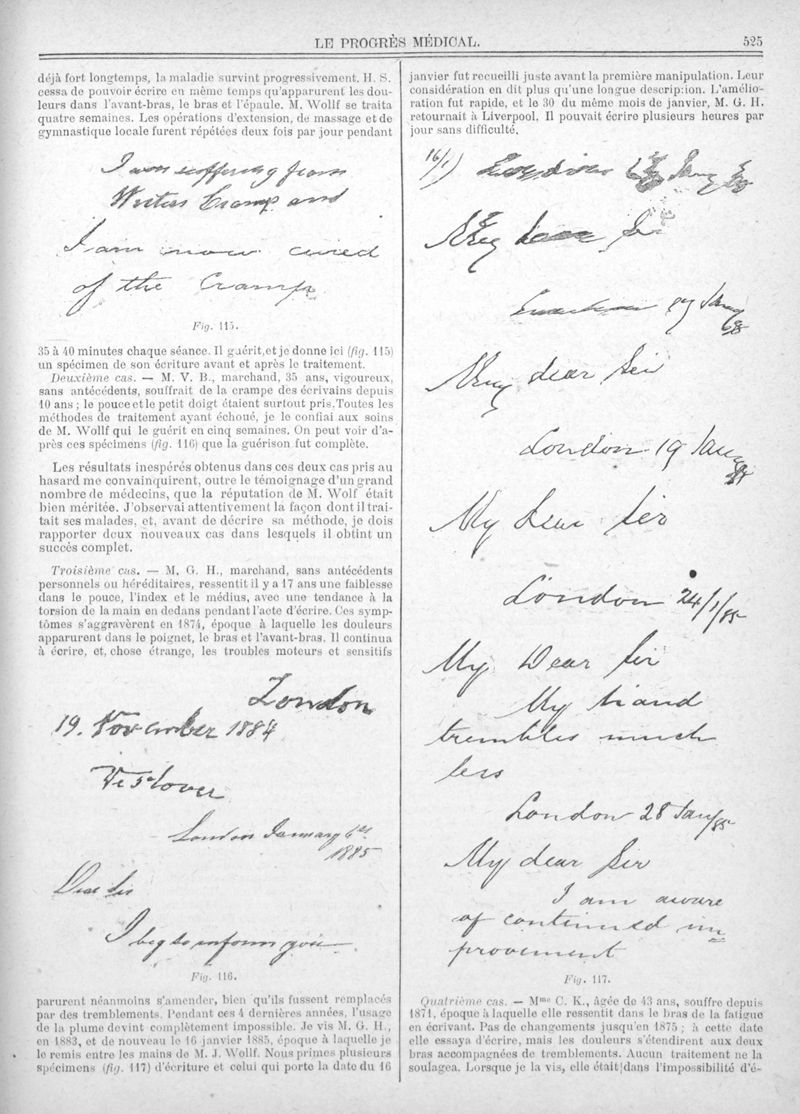 LE PROGRÈS MÉDICAL.
525
déjà fort longtemps, la maladie survint progressivement. H. S.
cessa de pouvoir écrire en même temps qu'apparurent les dou-
leurs dans l'avant-bras, le bras et l'épaule. M. Wollf se traita
quatre semaines. Les opérations d'extension, de massage et de
gymnastique locale furent répétées deux fois par jour pendant
I was suffering from
Writers Cramp and
I am now cured
of the Cramp
Fig. 115.
35 à 40 minutes chaque séance. Il guérit, et je donne ici (fig. 115)
un spécimen de son écriture avant et après le traitement.
Deuxième cas. — M. V. B., marchand, 35 ans, vigoureux,
sans antécédents, souffrait de la crampe des écrivains depuis
10 ans ; le pouce et le petit doigt étaient surtout pris. Toutes les
méthodes de traitement ayant échoué, je le confiai aux soins
de M. Wollf qui le guérit en cinq semaines. On peut voir d'a-
près ces spécimens (fig. 116) que la guérison fut complète.
Les résultats inespérés obtenus dans ces deux cas pris au
hasard me convainquirent, outre le témoignage d'un grand
nombre de médecins, que la réputation de M. Wolf était
bien méritée. J'observai attentivement la façon dont il trai-
tait ses malades, et, avant de décrire sa méthode, je dois
rapporter deux nouveaux cas dans lesquels il obtint un
succès complet.
Troisième cas. — M. G. H., marchand, sans antécédents
personnels ou héréditaires, ressentit il y a 17 ans une faiblesse
dans le pouce, l'index et le médius, avec une tendance à la
torsion de la main en dedans pendant l'acte d'écrire. Ces symp-
tômes s'aggravèrent en 1874, époque à laquelle les douleurs
apparurent dans le poignet, le bras et l'avant-bras. Il continua
à écrire, et, chose étrange, les troubles moteurs et sensitifs
London
19. November 1884
London January 6th
1885
Dear Sir
I beg to inform you
Fig. 116.
parurent néanmoins s'amender, bien qu'ils fussent remplacés
par des tremblements. Pendant ces 4 dernières années, l'usage
de la plume devint complètement impossible. Je vis M. G. H.,
en 1883, et de nouveau le 16 janvier 1885, époque à laquelle je
le remis entre les mains de M. J. Wollf. Nous primes plusieurs
spécimens (fig. 117) d'écriture et celui qui porte la date du 16
janvier fut recueilli juste avant la première manipulation. Leur
considération en dit plus qu'une longue description. L'amélio-
ration fut rapide, et le 30 du même mois de janvier, M. G. H.
retournait à Liverpool. Il pouvait écrire plusieurs heures par
jour sans difficulté.
16/1)
My dear Sir
London 19 Jany
My dear Sir
London 24/1/85
My Dear Sir
My hand
trembles much
less
London 28 Jany/85
My dear Sir
I am aware
of continued im
provement
Fig. 117.
Quatrième cas. — Mme C. K., âgée de 43 ans, souffre depuis
1871, époque à laquelle elle ressentit dans le bras de la fatigue
en écrivant. Pas de changements jusqu'en 1875 ; à cette date
elle essaya d'écrire, mais les douleurs s'étendirent aux deux
bras accompagnées de tremblements. Aucun traitement ne la
soulagea. Lorsque je la vis, elle était dans l'impossibilité d'é-